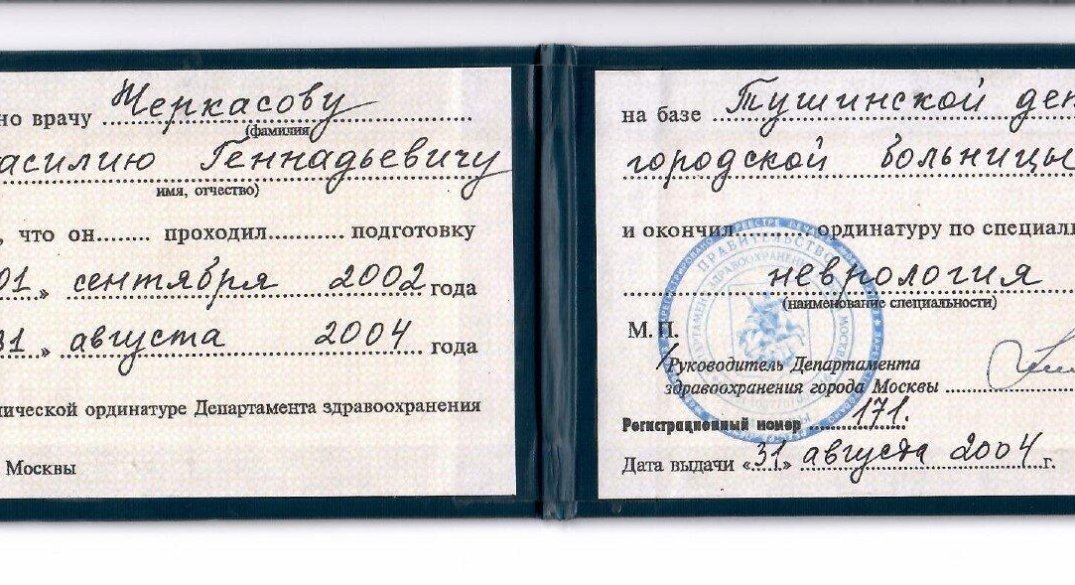 но врачу Черкасову
(фамилия
асилию Геннадьевичу
имя, отчество)
, что он........ проходил........... подготовку
01 » сентября 2002 года
31 » августа 2004 года
нической ординатуре Департамента здравоохранения
Москвы
на базе Тушинской де
городской больницы
и окончил ординатуру по специал
неврология
(наименование специальности)
М. П.
Руководитель Департамента
здравоохранения города Москвы
Регистрационный номер 171.
Дата выдачи «31» августа 2004 г.
ПРАВИТЕЛЬСТВО